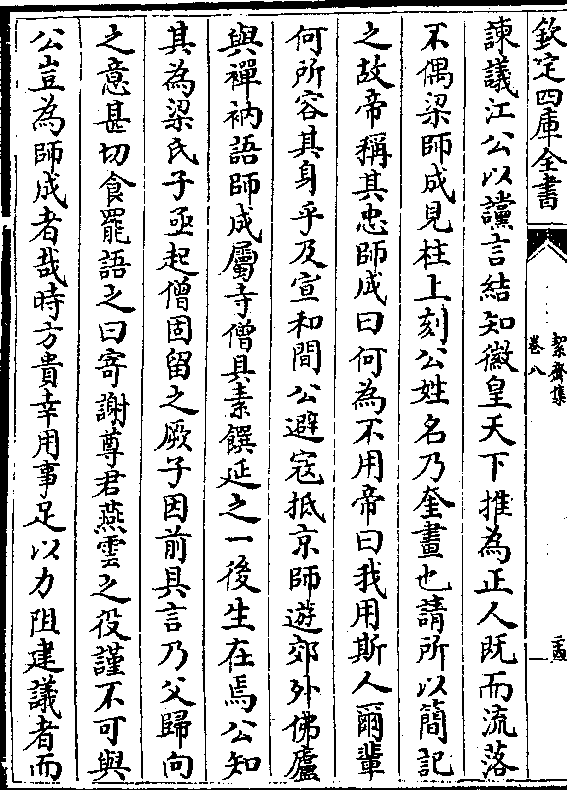 欽定四庫全書
絜齋集
卷八
諫議江公以讜言結知徽皇天下推為正人既而流落
不偶梁師成見柱上刻公姓名乃奎畫也請所以簡記
之故帝稱其忠師成曰何為不用帝曰我用斯人爾輩
何所容其身乎及宣和間公避寇抵京師遊郊外佛廬
與禪衲語師成屬寺僧具素饌延之一後生在焉公知
其為梁氏子亟起僧固留之厥子因前具言乃父歸向
之意甚切食罷語之曰寄謝尊君燕雲之役謹不可與
公豈為師成者哉時方貴幸用事足以力阻建議者而